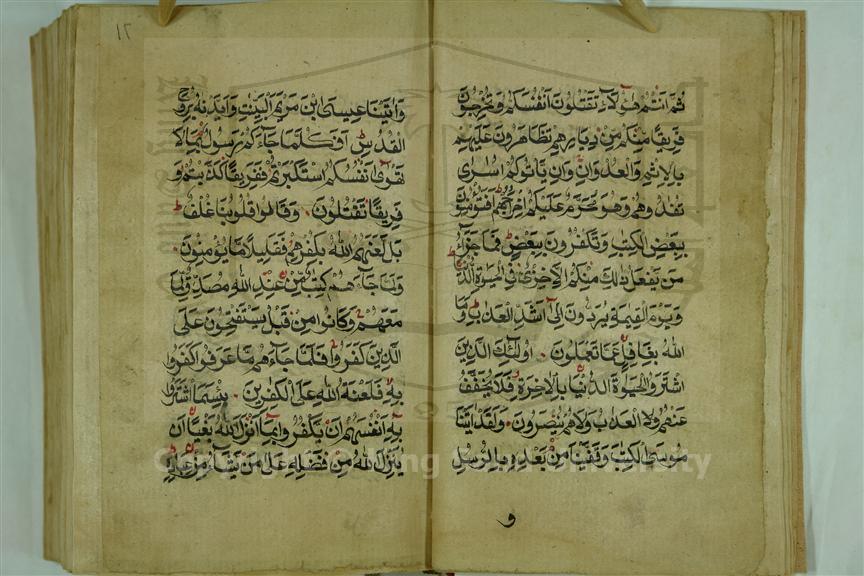 ثُمَّ اَنْتُمْ هٰؤُلَاءِ تَقْتُلُونَ اَنْفُسَكُمْ وَتُخْرِجُونَ
فَرِيقًا مِنْكُمْ مِنْ دِيَارِهِمْ تَظَاهَرُونَ عَلَيْهِمْ
بِالْاِثْمِ وَالْعُدْوَانِ وَاِنْ يَاْتُوكُمْ اُسَارٰى
تُفَدُوهُمْ وَهُوَ مُحَرَّمٌ عَلَيْكُمْ اِخْرَاجُهُمْ اَفَتُؤْمِنُونَ
بِبَعْضِ الْكِتٰبِ وَتَكْفُرُونَ بِبَعْضٍ فَمَا جَزَاءُ
مَنْ يَفْعَلُ ذٰلِكَ مِنْكُمْ اِلَّا خِزْىٌ فِى الْحَيٰوةِ الدُّنْيَا
وَيَوْمَ الْقِيٰمَةِ يُرَدُّونَ اِلٰى اَشَدِّ الْعَذَابِ وَمَا
اللّٰهُ بِغَافِلٍ عَمَّا تَعْمَلُونَ اُولٰئِكَ الَّذِينَ
اشْتَرَوُا الْحَيٰوةَ الدُّنْيَا بِالْاٰخِرَةِ فَلَا يُخَفَّفُ
عَنْهُمُ الْعَذَابُ وَلَا هُمْ يُنْصَرُونَ وَلَقَدْ اٰتَيْنَا
مُوسَى الْكِتٰبَ وَقَفَّيْنَا مِنْ بَعْدِهِ بِالرُّسُلِ
و
١٦
وَاٰتَيْنَا عِيسَى ابْنَ مَرْيَمَ الْبَيِّنٰتِ وَاَيَّدْنٰهُ بِرُوحِ
الْقُدُسِ اَفَكُلَّمَا جَاءَكُمْ رَسُولٌ بِمَا لَا
تَهْوٰى اَنْفُسُكُمُ اسْتَكْبَرْتُمْ فَفَرِيقًا كَذَّبْتُمْ وَ
فَرِيقًا تَقْتُلُونَ وَقَالُوا قُلُوبُنَا غُلْفٌ
بَلْ لَعَنَهُمُ اللّٰهُ بِكُفْرِهِمْ فَقَلِيلًا مَا يُؤْمِنُونَ
وَلَمَّا جَاءَهُمْ كِتٰبٌ مِنْ عِنْدِ اللّٰهِ مُصَدِّقٌ لِمَا
مَعَهُمْ وَكَانُوا مِنْ قَبْلُ يَسْتَفْتِحُونَ عَلَى
الَّذِينَ كَفَرُوا فَلَمَّا جَاءَهُمْ مَا عَرَفُوا كَفَرُوا
بِهِ فَلَعْنَةُ اللّٰهِ عَلَى الْكٰفِرِينَ بِئْسَمَا اشْتَرَوْا
بِهِ اَنْفُسَهُمْ اَنْ يَكْفُرُوا بِمَا اَنْزَلَ اللّٰهُ بَغْيًا اَنْ
يُنَزِّلَ اللّٰهُ مِنْ فَضْلِهِ عَلٰى مَنْ يَشَاءُ مِنْ عِبَادِهِ